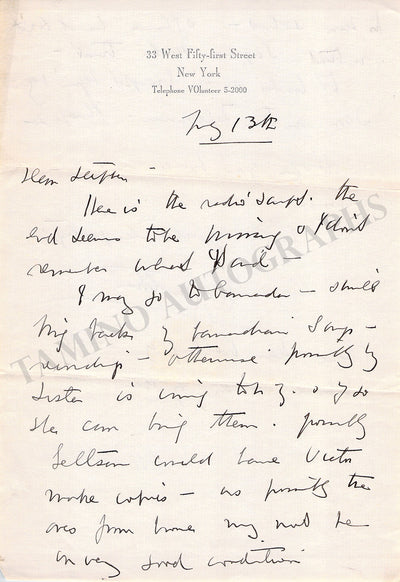 33 West Fifty-first Street
New York
Telephone VOlunteer 5-2000
July 13th
Dear
Here is the radio script. The
end seems to be missing & I don't
remember what I said —
I may go to Canada —
bring back my Canadian
recordings — otherwise possibly my
sister is coming to N.Y. & if so
she can bring them. possibly
could have Victor
make copies — as possibly the
ones from home may not be
in very good condition
TAMINO AUTOGRAPHS